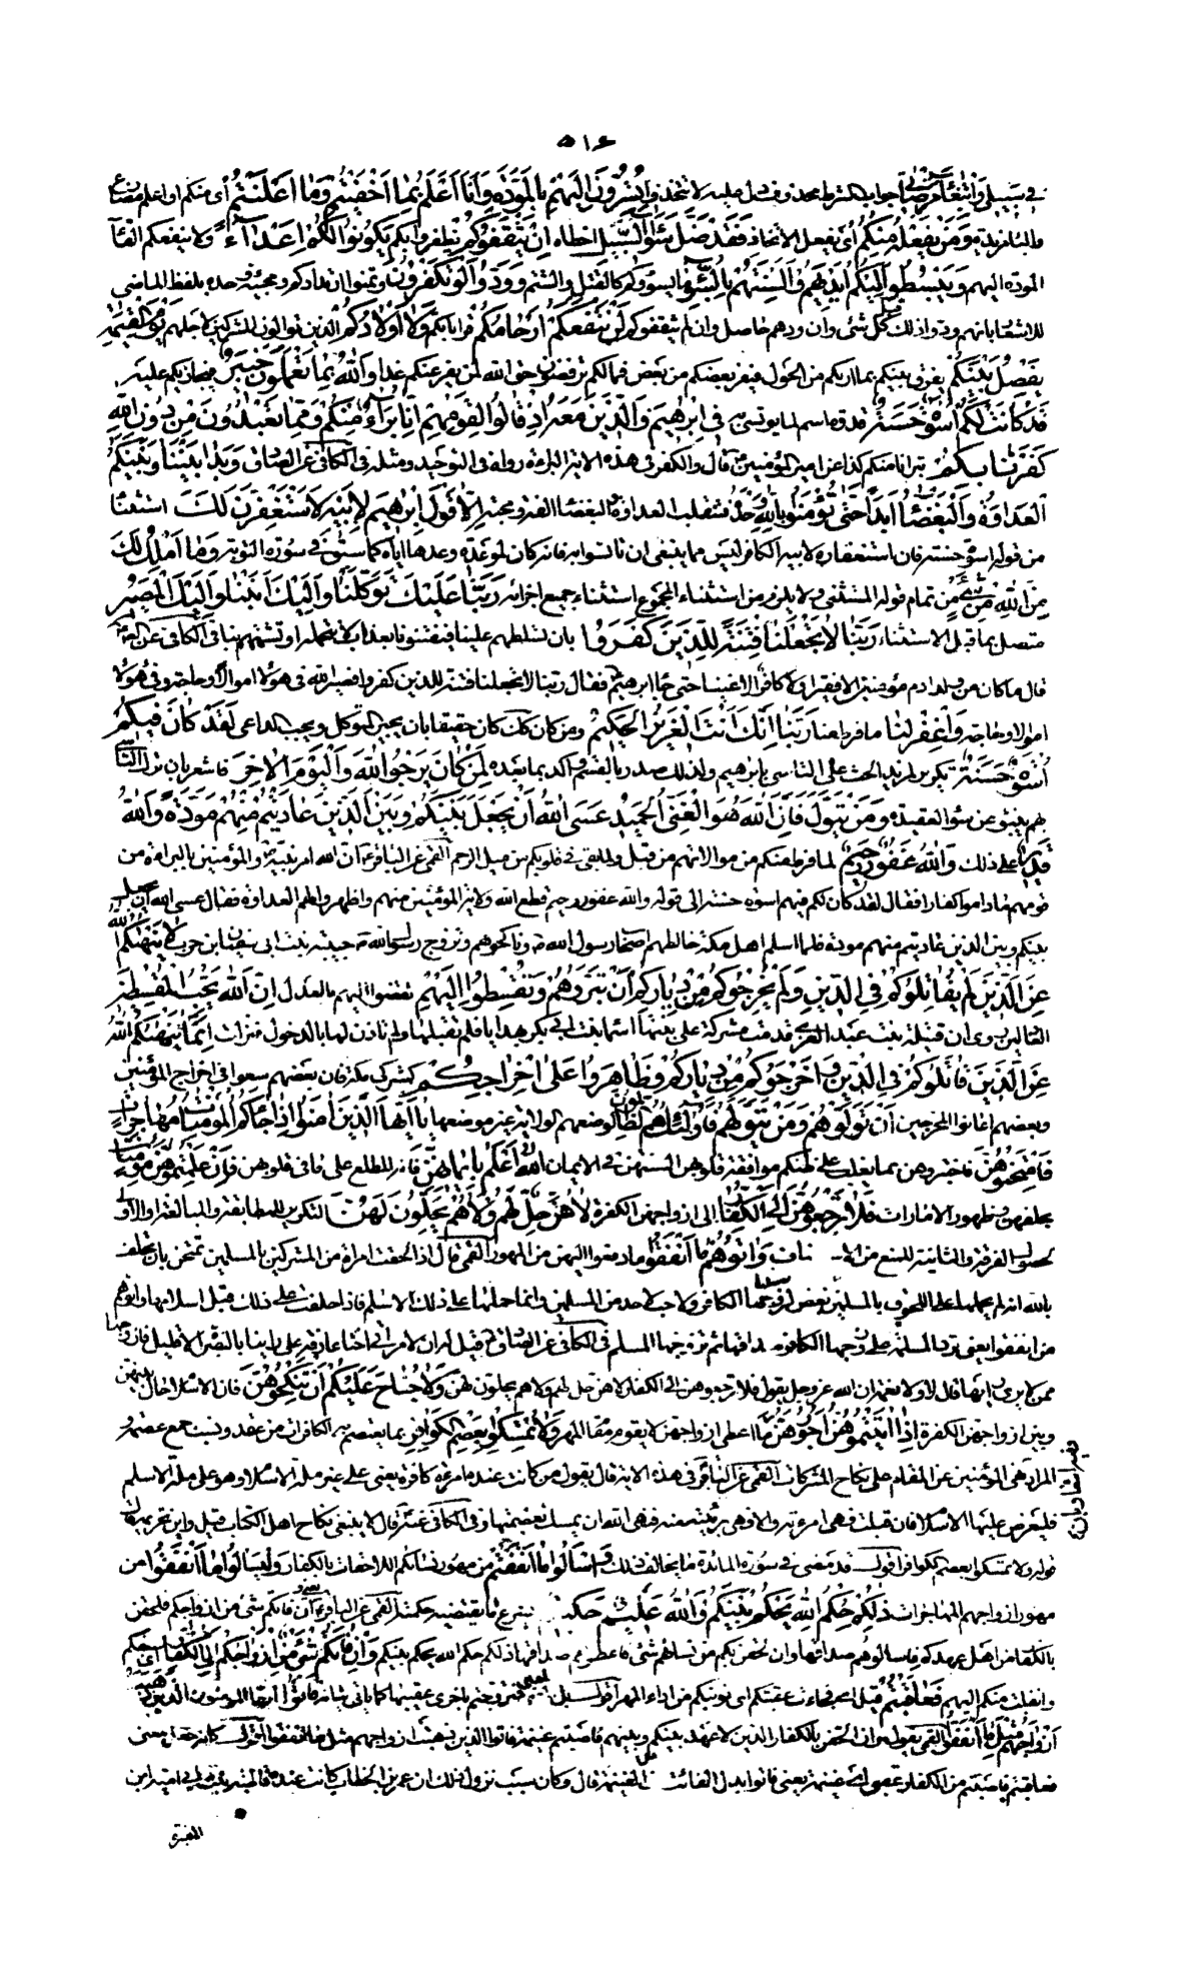 ٥١٤
في سبيلي وابتغاء مرضاتي جواب الشرط محذوف دل عليه لا تتخذوا تسرون اليهم بالمودة وانا اعلم بما اخفيتم وما اعلنتم أي منكم او اعلم مضارع
والباء مزيدة ومن يفعله منكم أي يفعل الاتخاذ فقد ضل سواء السبيل اخطاه ان يثقفوكم يظفروا بكم يكونوا لكم اعداء ولا ينفعكم القاء
المودة اليهم ويبسطوا اليكم ايديهم والسنتهم بالسوء بما يسوؤكم كالقتل والشتم وودوا لو تكفرون وتمنوا ارتدادكم ومجيئه وحده بلفظ الماضي
للاشعار بانهم ودوا ذلك قبل كل شئ وان ودهم حاصل وان لم يثقفوكم لن تنفعكم ارحامكم قراباتكم ولا اولادكم الذين توالون المشركين لاجلهم يوم القيمة
يفصل بينكم يفرق بينكم بما اريكم من الهول فيفر بعضكم من بعض فما لكم ترفضون حق الله لمن يفر عنكم غدا والله بما تعملون خبير فيجازيكم عليه
قد كانت لكم اسوة حسنة قدوة اسم لما يؤتسى به في ابرهيم والذين معه اذ قالوا لقومهم انا برآء منكم ومما تعبدون من دون الله
كفرنا بكم تبرانا منكم كذا عن امير المؤمنين قال والكفر في هذه الاية البراءة رواه في التوحيد ومثله في الكافي عن الصادق وبدا بيننا وبينكم
العداوة والبغضاء ابدا حتى تؤمنوا بالله وحده فتنقلب العداوة والبغضاء الفة ومحبة الا قول ابرهيم لابيه لاستغفرن لك استثناء
من قوله اسوة حسنة فان استغفاره لابيه الكافر ليس مما ينبغي ان تاتسوا به فانه كان لموعدة وعدها اياه كما سبق في سورة التوبة وما املك لك
من الله من شئ من تمام قوله المستثنى ولا يلزم من استثناء المجموع استثناء جميع اجزائه ربنا عليك توكلنا واليك انبنا واليك المصير
متصل بما قبل الاستثناء ربنا لا تجعلنا فتنة للذين كفروا بان تسلطهم علينا فيفتنونا بعذاب لا نتحمله او تشمتهم بنا في الكافي عن الصادق
قال ما كان من ولد ادم مؤمن الا فقيرا ولا كافر الا غنيا حتى جاء ابرهيم فقال ربنا لا تجعلنا فتنة للذين كفروا فصير الله في هؤلاء اموالا وحاجة وفي هؤلاء
اموالا وحاجة واغفر لنا ما فرط منا ربنا انك انت العزيز الحكيم ومن كان كذلك كان حقيقا بان يجير المتوكل ويجيب الداعي لقد كان لكم فيهم
اسوة حسنة تكرير لمزيد الحث على التاسي بابرهيم ولذلك صدر بالقسم واكد بما بعده لمن كان يرجوا الله واليوم الاخر فاشعر بان ترك التاسي
بهم ينبئ عن سوء العقيدة ومن يتول فان الله هو الغني الحميد عسى الله ان يجعل بينكم وبين الذين عاديتم منهم مودة والله
قدير على ذلك والله غفور رحيم لما فرط منكم من موالاتهم من قبل ولما بقي في قلوبكم من ميل الرحم القمي عن الباقر ان الله امر نبيه والمؤمنين بالبراءة من
قومهم ما داموا كفارا فقال لقد كان لكم فيهم اسوة حسنة الى قوله والله غفور رحيم قطع الله ولاية المؤمنين منهم واظهروا لهم العداوة فقال عسى الله ان يجعل
بينكم وبين الذين عاديتم منهم مودة فلما اسلم اهل مكة خالطهم اصحاب رسول الله وناكحوهم وتزوج رسول الله حبيبة بنت ابي سفيان بن حرب لا ينهيكم الله
عن الذين لم يقاتلوكم في الدين ولم يخرجوكم من دياركم ان تبروهم وتقسطوا اليهم تفضوا اليهم بالعدل ان الله يحب المقسطين
العادلين روي ان قتيلة بنت عبد العزى قدمت مشركة على بنتها اسماء بنت ابي بكر بهدايا فلم تقبلها ولم تاذن لها بالدخول فنزلت انما ينهيكم الله
عن الذين قاتلوكم في الدين واخرجوكم من دياركم وظاهروا على اخراجكم كمشركي مكة فان بعضهم سعوا في اخراج المؤمنين
وبعضهم اعانوا المخرجين ان تولوهم ومن يتولهم فاولئك هم الظالمون لوضعهم الولاية غير موضعها يا ايها الذين امنوا اذا جاءكم المؤمنات مهاجرات
فامتحنوهن فاختبروهن بما يغلب على ظنكم موافقة قلوبهن السنتهن في الايمان الله اعلم بايمانهن فانه المطلع على ما في قلوبهن فان علمتموهن مؤمنات
بحلفهن وظهور الامارات فلا ترجعوهن الى الكفار الى ازواجهن الكفرة لا هن حل لهم ولا هم يحلون لهن التكرير للمطابقة والمبالغة والاولى
لحصول الفرقة والثانية للمنع من الاستيناف واتوهم ما انفقوا ما دفعوا اليهن من المهور القمي قال اذا لحقت امراة من المشركين بالمسلمين تمتحن بان تحلف
بالله انه لم يحملها على اللحوق بالمسلمين بغض لزوجها الكافر ولا حب لاحد من المسلمين وانما حملها على ذلك الاسلام فاذا حلفت على ذلك قبل اسلامها واتوهم
ما انفقوا يعني ترد المسلمة على زوجها الكافر صداقها ثم تزوجها المسلم في الكافي عن الصادق قيل له ان لامراتي اختا عارفة على راينا بالبصرة الا قليل فازوجها
ممن لا يرى رايها قال لا ولا نعمة ان الله عز وجل يقول فلا ترجعوهن الى الكفار لا هن حل لهم ولا هم يحلون لهن ولا جناح عليكم ان تنكحوهن فان الاسلام حال بينهن
وبين ازواجهن الكفرة اذا اتيتموهن اجورهن ما اعطى ازواجهن لا يقوم مقام المهر ولا تمسكوا بعصم الكوافر بما يعتصم به الكافرات من عقد ونسب جمع عصمة و
المراد نهي المؤمنين عن المقام على نكاح المشركات القمي عن الباقر في هذه الاية قال يقول من كانت عنده امراة كافرة يعني على غير ملة الاسلام وهو على ملة الاسلام
فليعرض عليها الاسلام فان قبلت فهي امراته والا فهي بريئة منه فنهى الله ان يمسك بعصمتها وفي الكافي عنه قال لا ينبغي نكاح اهل الكتاب قيل واين تحريمه قال
قوله ولا تمسكوا بعصم الكوافر اقول قد مضى في سورة المائدة ما يخالف ذلك واسالوا ما انفقتم من مهور نسائكم اللاحقات بالكفار وليسالوا ما انفقوا من
مهور ازواجهم المهاجرات ذلكم حكم الله يحكم بينكم والله عليم حكيم يشرع ما يقتضيه حكمته القمي عن الباقر وان فاتكم شئ من ازواجكم فلحقن
بالكفار من اهل عهدكم فاسالوهم صداقها وان لحقن بكم من نسائهم شئ فاعطوهم صداقها ذلكم حكم الله يحكم بينكم وان فاتكم شئ من ازواجكم الى الكفار اي سبقكم
وانفلت منكم اليهم فعاقبتم قيل اي فجاءت عقبتكم اي نوبتكم من اداء المهر اقول بل فتزوجتم باخرى عقيبها كما ياتي بيانه فاتوا ايها المؤمنون الذين ذهبت
ازواجهم مثل ما انفقوا القمي يقول وان لحقن بالكفار الذين لا عهد بينكم وبينهم فاصبتم غنيمة فاتوا الذين ذهبت ازواجهم مثل ما انفقوا اقول كانه جعل معنى
فعاقبتم فاصبتم من الكفار عقبى اي غنيمة يعني فاتوا بدل الفائت من الغنيمة قال وكان سبب نزول ذلك ان عمر بن الخطاب كانت عنده فاطمة بنت ابي امية بن
المغيرة